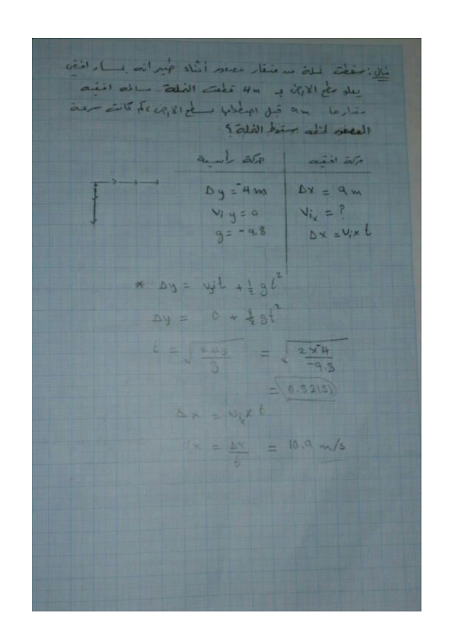 مثال: سقطت نملة من منقار عصفور أثناء طيرانه بمسار افقي
يعلو سطح الارض بـ 4m قطعت النملة مسافه افقيه
مقدارها 9m قبل اصطدامها بسطح الارض، كم كانت سرعة
العصفور لحظه سقوط النملة؟
حركة افقيه حركة رأسية
Δx = 9 m Δy = -4 m
Vix = ? Viy = 0
Δx = Vix t g = -9.8
* Δy = Viy t + 1/2 g t²
Δy = 0 + 1/2 g t²
t = √(2Δy/g) = √(2×-4/-9.8)
= 0.82(s)
Δx = Vix t
Vix = Δx/t = 10.9 m/s